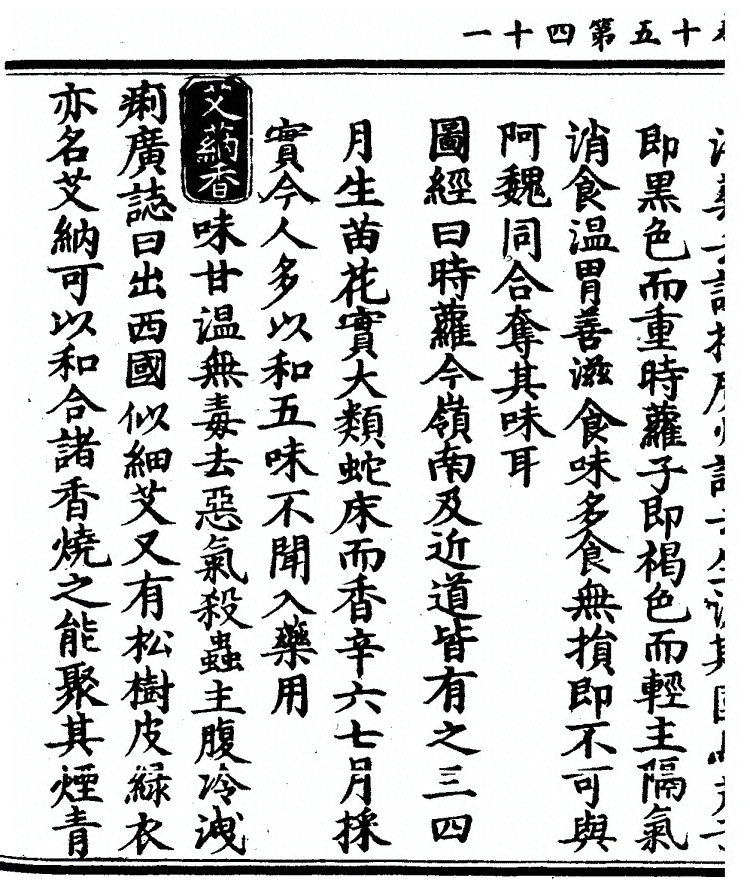 十五第四十一
即黑色而重時蘿子即褐色而輕主隔氣
消食温胃善滋食味多食無損即不可與
阿魏同合奪其味耳
圖經曰時蘿今嶺南及近道皆有之三四
月生苗花實大類蛇床而香辛六七月採
實今人多以和五味不聞入藥用
艾蒳香味甘温無毒去惡氣殺蟲主腹冷洩
痢廣誌曰出西國似細艾又有松樹皮緑衣
亦名艾納可以和合諸香燒之能聚其煙青